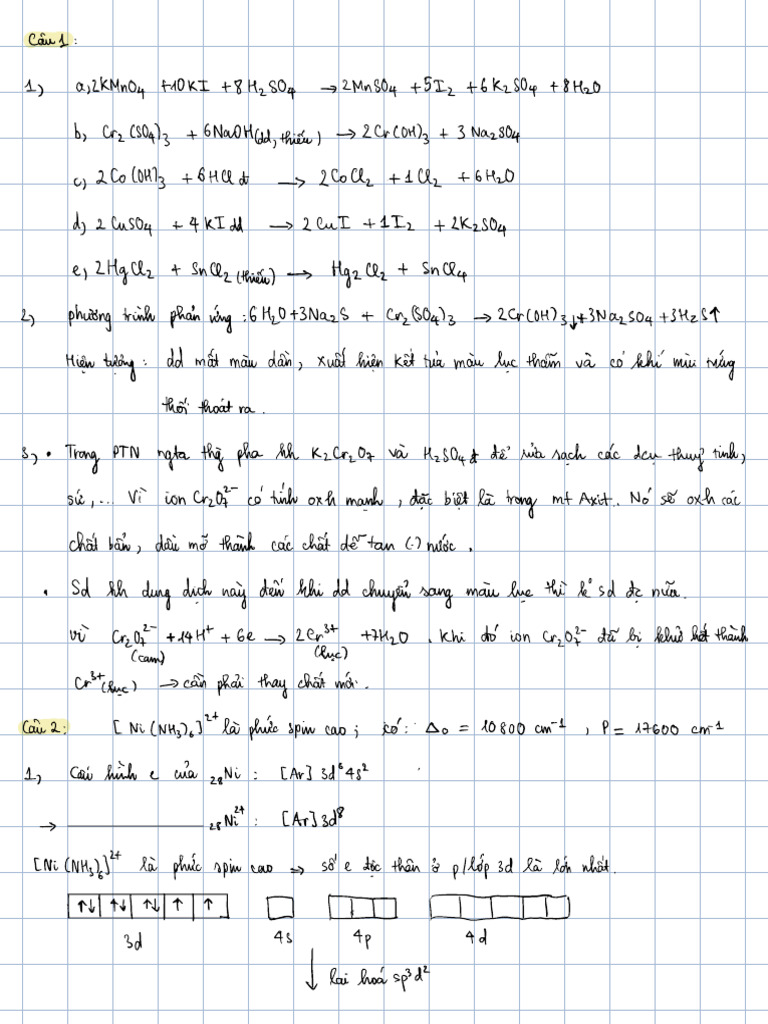 Câu 1:
1, a, 2KMnO₄ + 10KI + 8H₂SO₄ → 2MnSO₄ + 5I₂ + 6K₂SO₄ + 8H₂O
b, Cr₂(SO₄)₃ + 6NaOH(dd, thiếu) → 2Cr(OH)₃ + 3Na₂SO₄
c, 2Co(OH)₃ + 6HCl đ → 2CoCl₂ + 1Cl₂ + 6H₂O
d, 2CuSO₄ + 4KI dd → 2CuI + 1I₂ + 2K₂SO₄
e, 2HgCl₂ + SnCl₂ (thiếu) → Hg₂Cl₂ + SnCl₄
2, phương trình phản ứng: 6H₂O + 3Na₂S + Cr₂(SO₄)₃ → 2Cr(OH)₃↓ + 3Na₂SO₄ + 3H₂S↑
Hiện tượng: dd mất màu dần, xuất hiện kết tủa màu lục thẫm và có khí mùi trứng
thối thoát ra.
3, • Trong PTN ngta thg pha hh K₂Cr₂O₇ và H₂SO₄ đ để rửa sạch các dcụ thuỷ tinh,
sứ,... Vì ion Cr₂O₇²⁻ có tính oxh mạnh, đặc biệt là trong mt Axit. Nó sẽ oxh các
chất bẩn, dầu mỡ thành các chất dễ tan (·) nước.
• Sd hh dung dịch này đến khi dd chuyển sang màu lục thì k sd đc nữa.
vì Cr₂O₇²⁻ + 14H⁺ + 6e → 2Cr³⁺ + 7H₂O. Khi đó ion Cr₂O₇²⁻ đã bị khử hết thành
(cam) (lục)
Cr³⁺ (lục) → cần phải thay chất mới.
Câu 2: [Ni(NH₃)₆]²⁺ là phức spin cao; có: Δ₀ = 10800 cm⁻¹, P = 17600 cm⁻¹
1, Cấu hình e của ₂₈Ni: [Ar] 3d⁶4s²
→ ₂₈Ni²⁺: [Ar] 3d⁸
[Ni(NH₃)₆]²⁺ là phức spin cao → số e độc thân ở p/lớp 3d là lớn nhất.
↑↓ ↑↓ ↑↓ ↑ ↑
3d 4s 4p 4d
↓ lai hoá sp³d²